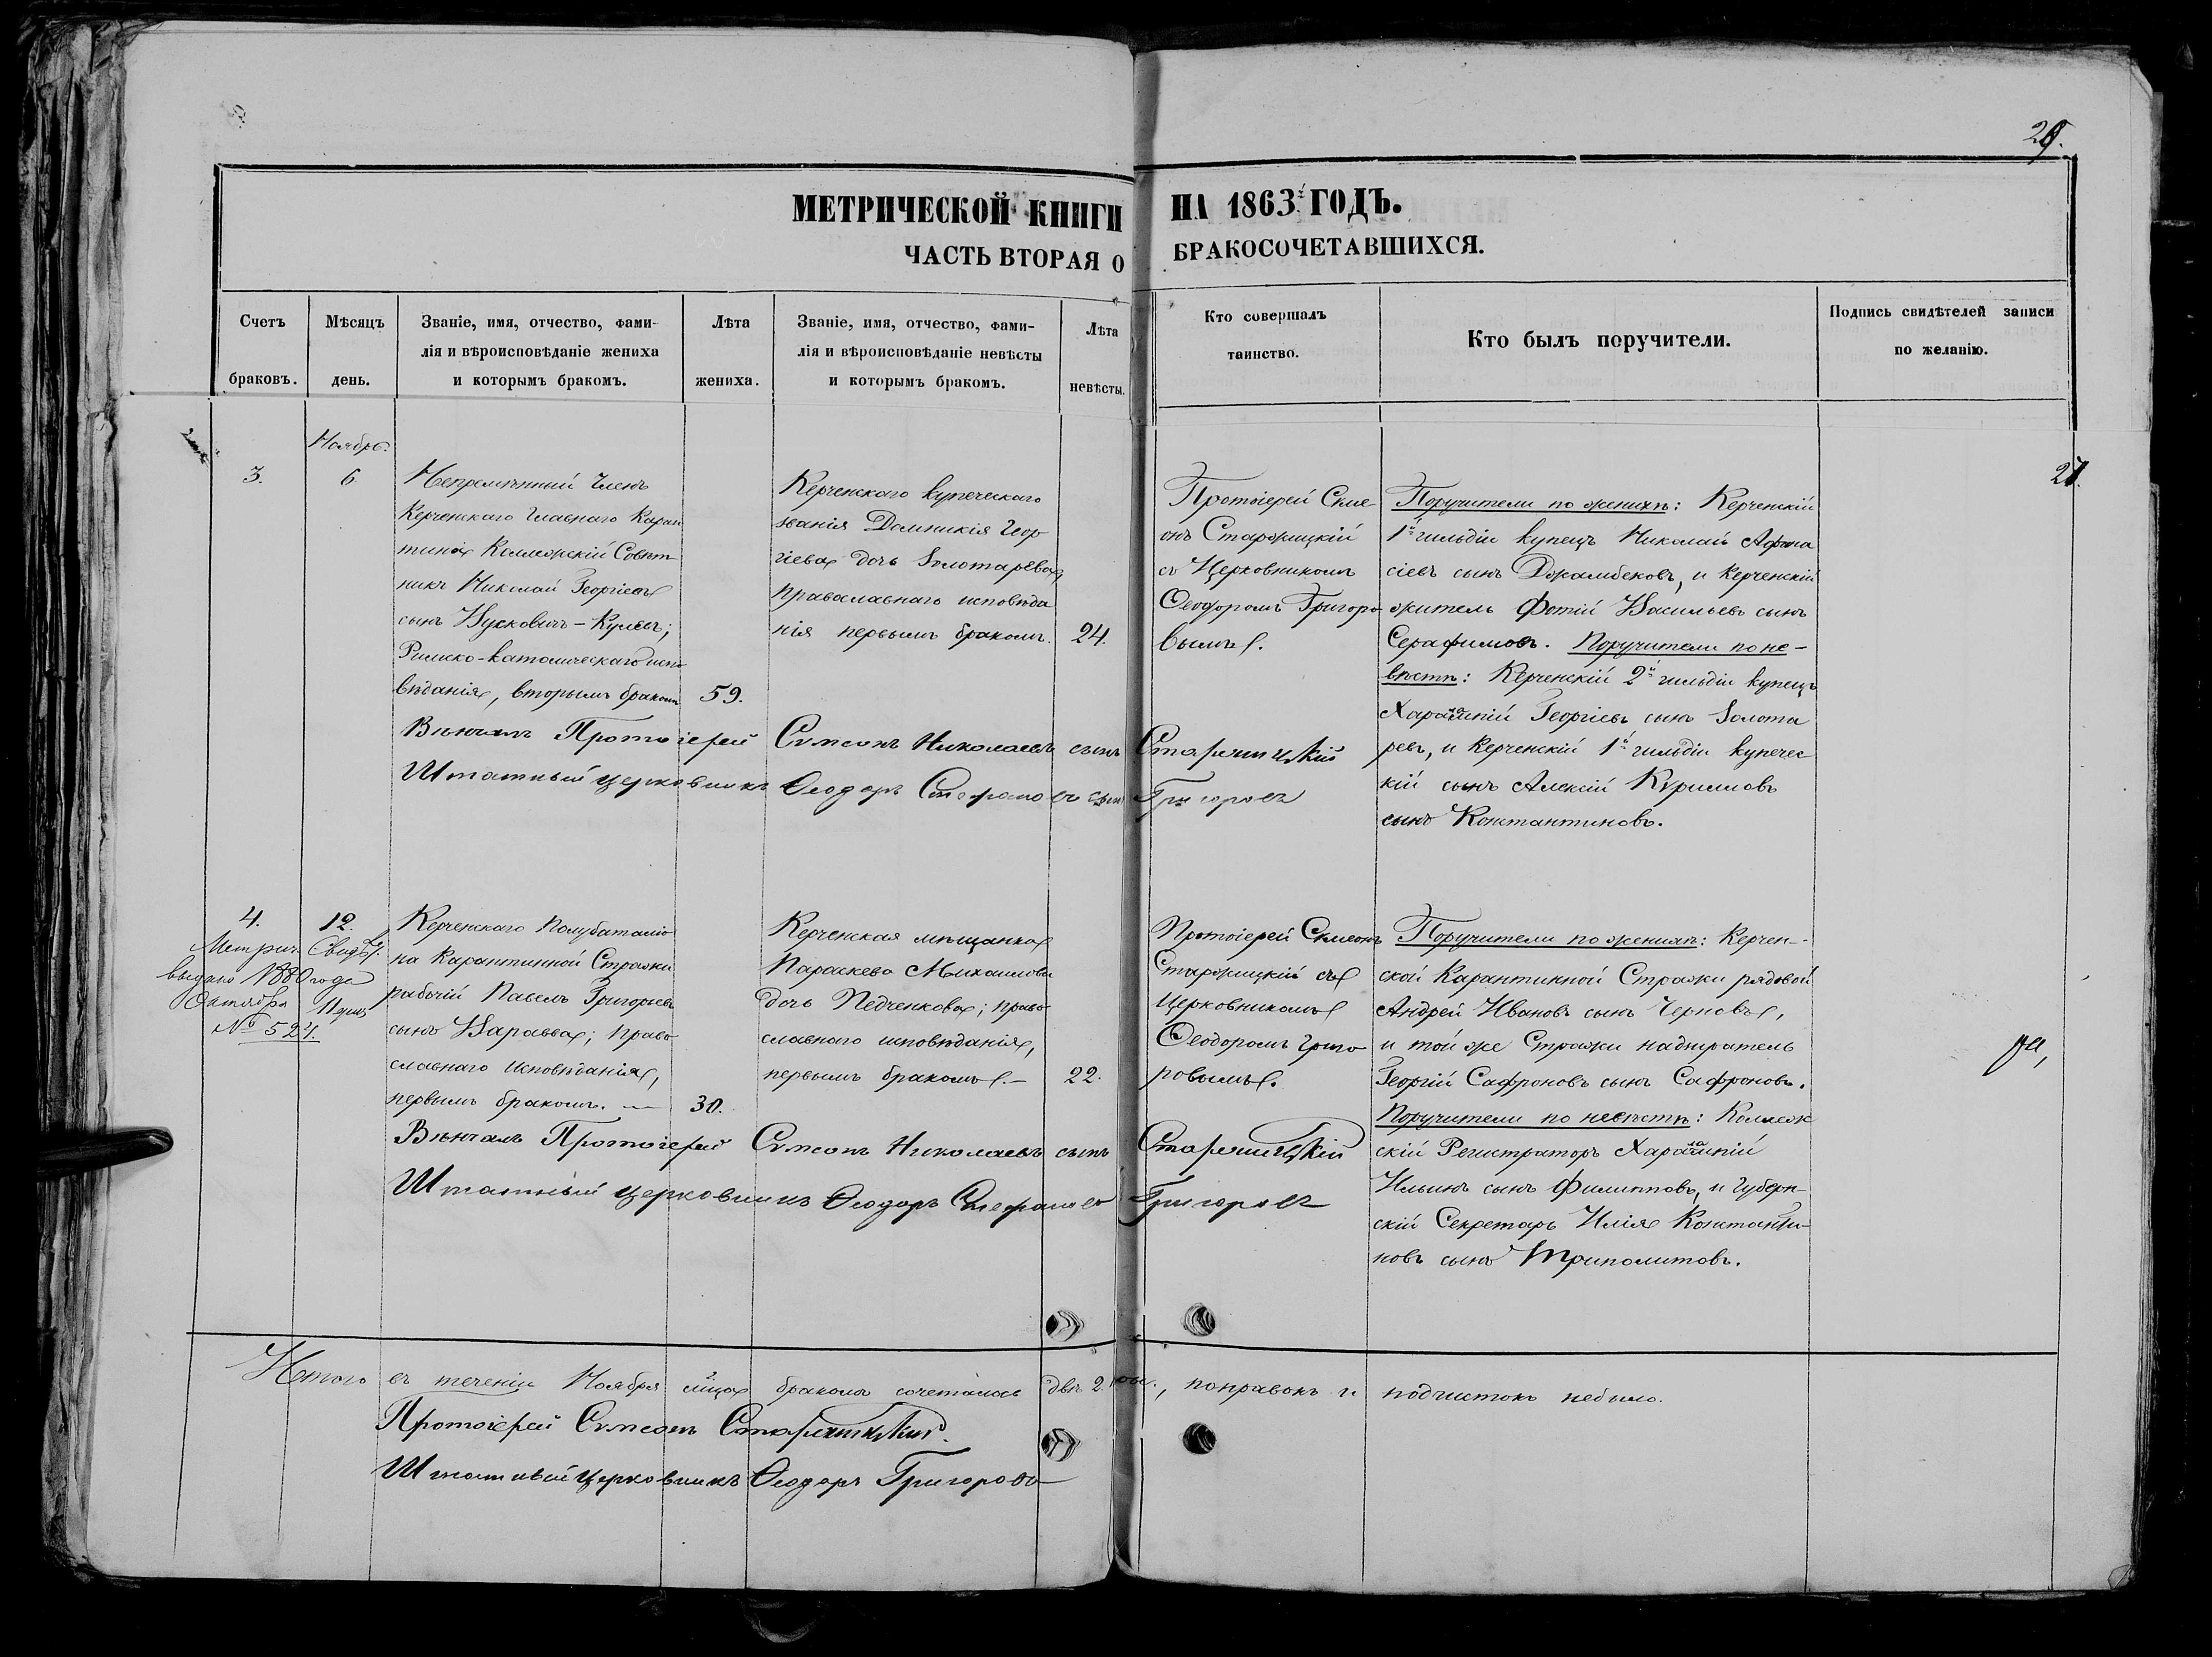 29.
МЕТРИЧЕСКОЙ КНИГИ НА 1863й ГОДЪ.
ЧАСТЬ ВТОРАЯ О БРАКОСОЧЕТАВШИХСЯ.
Счетъ браковъ.
Мѣсяцъ день.
Званіе, имя, отчество, фами-
лія и вѣроисповѣданіе жениха
и которымъ бракомъ.
Лѣта жениха.
Званіе, имя, отчество, фами-
лія и вѣроисповѣданіе невѣсты
и которымъ бракомъ.
Лѣта невѣсты.
Кто совершалъ
таинство.
Кто былъ поручители.
Подпись свидѣтелей записи
по желанію.
Ноябрь.
3.
6
Непремѣнный Членъ
Керченскаго Главнаго Каран
тина Коллежскій Совѣт
никъ Николай Георгіевъ
сынъ
Римско-католическаго испо
вѣданія, вторымъ бракомъ
59.
Керченскаго купеческаго
званія Домникія Геор
гіева дочь Золотарева
православнаго исповѣда
нія первымъ бракомъ.
24.
Протоіерей Симе
онъ Старжицкій
съ Церковникомъ
Ѳеодоромъ Григоро
вымъ.
Поручители по женихѣ: Керченскій
1й гильдіи купецъ Николай Афана
сіевъ сынъ Джамбековъ, и Керченскій
житель Фотій Васильевъ сынъ
Серафимовъ. Поручители по не-
вѣстѣ: Керченскій 2й гильдіи купецъ
Харалампій Георгіевъ сынъ Золота
ревъ, и Керченскій 1й гильдіи купечес
кій сынъ Алексій Кирилловъ
сынъ Константиновъ.
Вѣнчалъ Протоіерей Сѵмеонъ Николаевъ сынъ Старжицкій
Штатный церковникъ Ѳеодоръ Стефановъ сынъ Григоровъ
4.
12.
Метрич. Свид.
выдано 1880 года
Октября 11 дня
№ 524.
Керченскаго Полубаталіо
на Карантинной Стражи
рабочій Павелъ Григорьевъ
сынъ Варавва; право
славнаго исповѣданія,
первымъ бракомъ. —
30.
Керченская мѣщанка
Параскева Михаилова
дочь Педченкова; право
славнаго исповѣданія,
первымъ бракомъ. —
22.
Протоіерей Симеонъ
Старжицкій съ
Церковникомъ
Ѳеодоромъ Григо
ровымъ.
Поручители по женихѣ: Керчен-
ской Карантинной Стражи рядовой
Андрей Ивановъ сынъ Черновъ,
и той же Стражи надзиратель
Георгій Сафроновъ сынъ Сафроновъ.
Поручители по невѣстѣ: Коллеж
скій Регистраторъ Харалампій
Ильинъ сынъ Филипповъ, и Губерн-
скій Секретарь Илія Константи-
новъ сынъ Триполитовъ.
Вѣнчалъ Протоіерей Сѵмеонъ Николаевъ сынъ Старжицкій
Штатный церковникъ Ѳеодоръ Стефановъ Григоровъ
Итого въ теченіи Ноября мѣсца бракомъ сочеталось двѣ 2., поправокъ и подчистокъ небыло.
Протоіерей Сѵмеонъ Старжицкій.
Штатный церковникъ Ѳеодоръ Григоровъ